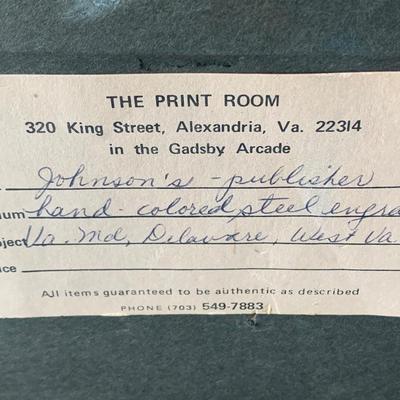 THE PRINT ROOM
320 King Street, Alexandria, Va. 22314
in the Gadsby Arcade
Johnson's - publisher
ium hand-colored steel engra
oject Va. Md, Delaware, West Va.
ice
All items guaranteed to be authentic as described
PHONE (703) 549-7883